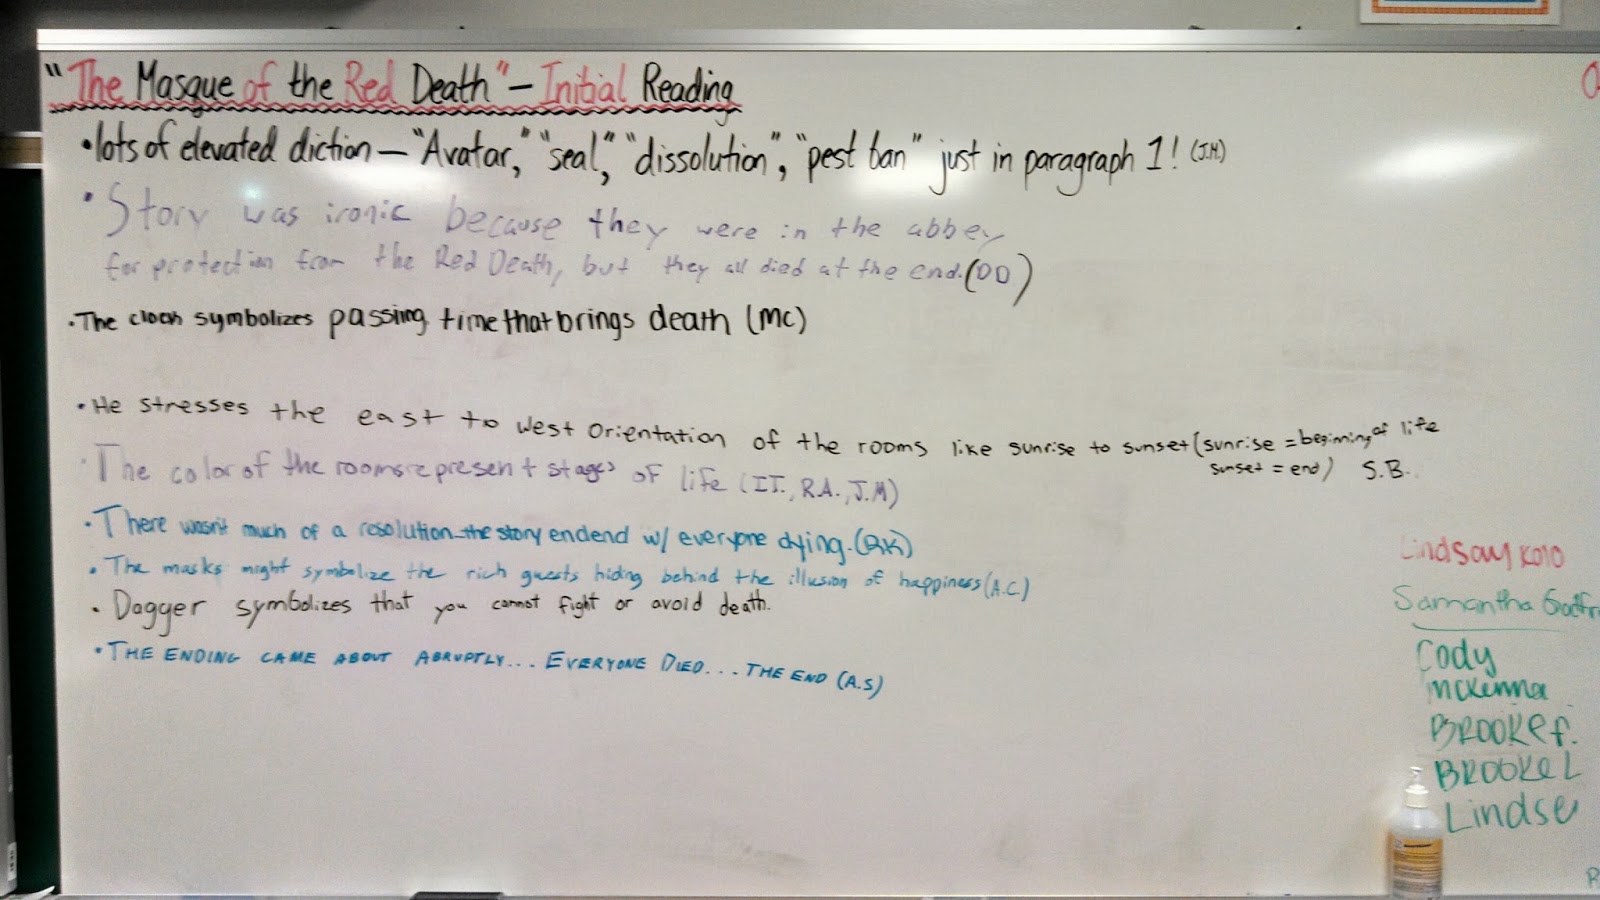 "The Masque of the Red Death" – Initial Reading
• lots of elevated diction – "Avatar," "seal," "dissolution", "pest ban" just in paragraph 1! (J.M.)
• Story was ironic because they were in the abbey
for protection from the Red Death, but they all died at the end. (DD)
• The clock symbolizes passing time that brings death (MC)
• He stresses the east to west orientation of the rooms like sunrise to sunset (sunrise = beginning of life
sunset = end) S.B.
• The color of the rooms represent stages of life (I.T., R.A., J.M)
• There wasn't much of a resolution – the story endend w/ everyone dying. (RK)
• The masks might symbolize the rich guests hiding behind the illusion of happiness (A.C.)
• Dagger symbolizes that you cannot fight or avoid death.
• THE ENDING CAME ABOUT ABRUPTLY... EVERYONE DIED... THE END (A.S)
Lindsay Kolo
Samantha
Cody
McKenna
BROOKE F.
BROOKE L
Lindse